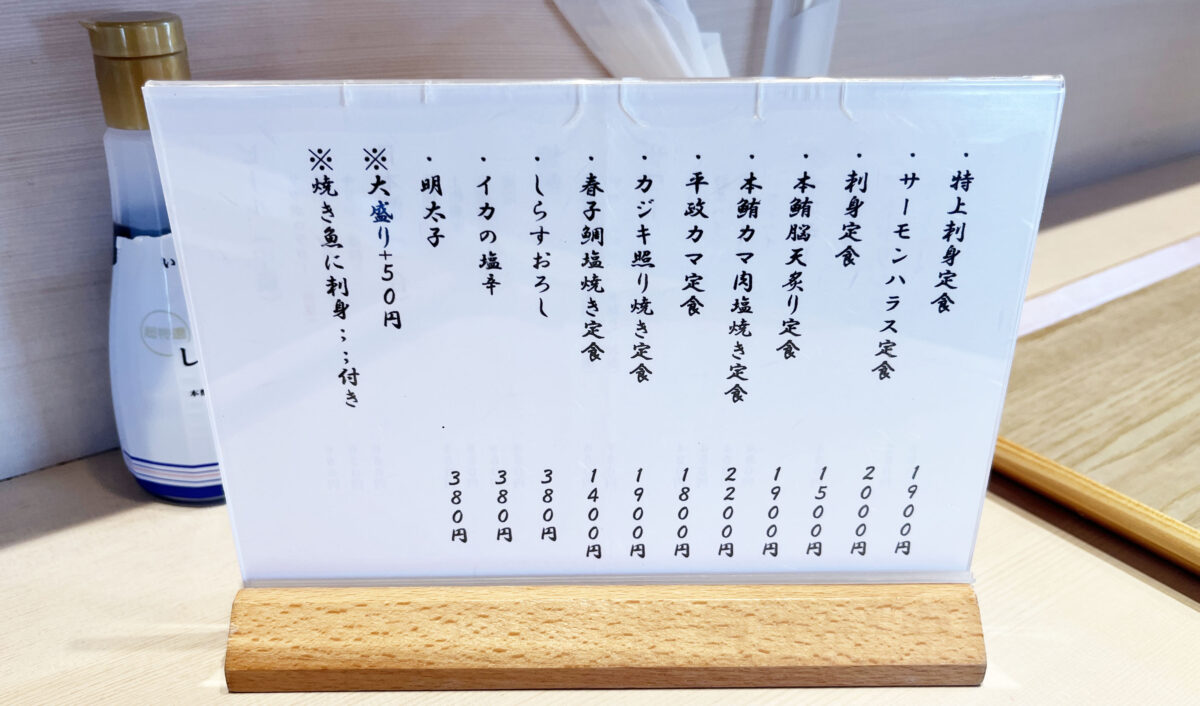 ・特上刺身定食 1900円
・サーモンハラス定食 2000円
・刺身定食 1500円
・本鮪脳天炙り定食 1900円
・本鮪カマ肉塩焼き定食 2200円
・平政カマ定食 1800円
・カジキ照り焼き定食 1900円
・春子鯛塩焼き定食 1400円
・しらすおろし 380円
・イカの塩辛 380円
・明太子 380円
※大盛り+50円
※焼き魚に刺身；；付き
い
超特選
し